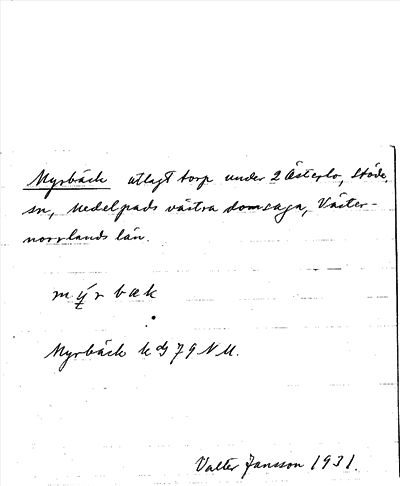 Myrbäck utlagt torp under 2 Österlo, Stöde
sn, Medelpads västra domsaga, Väster-
norrlands län.
mýrbæk
Myrbäck k 79 N U.
Valter Jansson 1931.